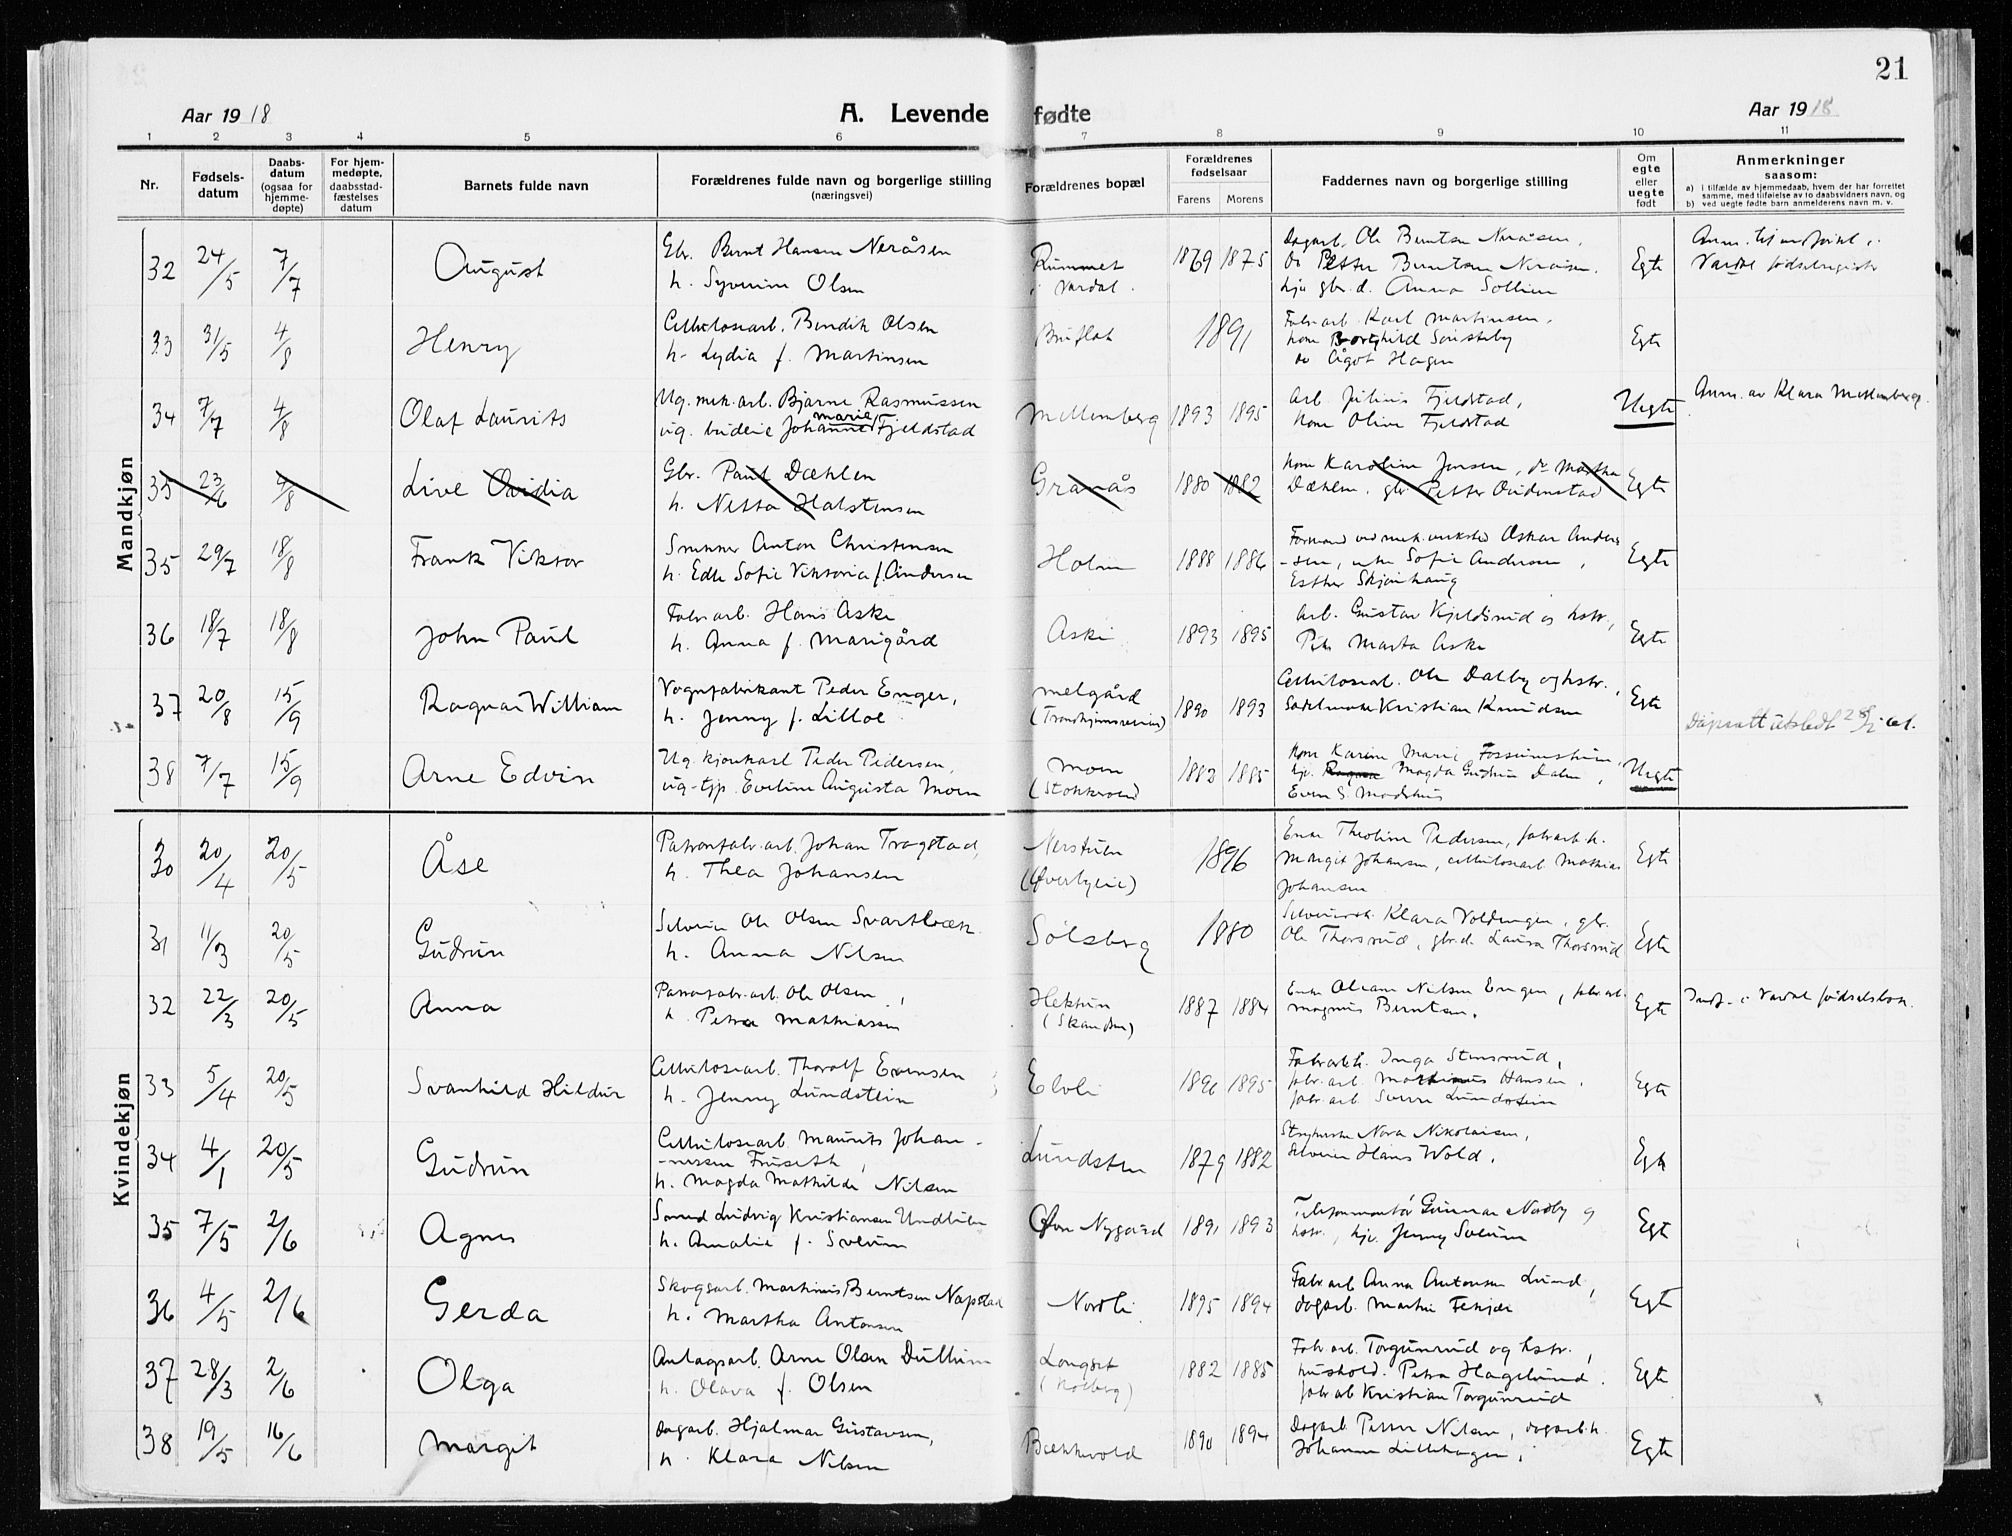 21
Aar 1918 A. Levende fødte Aar 1918
1 2 3 4 5 6 7 8 9 10 11
Nr.
Fødsels-
datum
Daabs-
datum
(ogsaa for
hjemme-
døpte)
For hjem-
medøpte,
daabsstad-
fæstelses
datum
Barnets fulde navn
Forældrenes fulde navn og borgerlige stilling
(næringsvei)
Forældrenes bopæl
Forældrenes
fødselsaar
Farens Morens
Faddernes navn og borgerlige stilling
Om
egte
eller
uegte
født
Anmerkninger
saasom:
a) i tilfælde av hjemmedaab, hvem der har forrettet
samme, med tilføielse av to daabsvidners navn, og
b) ved uegte fødte barn anmelderens navn m. v.
Mandkjøn
32 24/5 7/7 August
Gbr. Bernt Hansen Neråsen
h. Syverine Olsen
Rummet
i Vardal.
1869 1875
Dagarb. Ole Berntsen Neråsen,
do Petter Berntsen Neråsen.
hju gbr.d. Anna Sollien
Egte
Vardal fødselregister
33 31/5 4/8 Henry
Cellulosearb. Bendik Olsen
h. Lydia f. Martinsen
Bruflat
1891
Fabr.arb. Karl Martinsen,
kone Borghild Sønsteby
do Ågot Hagen
Egte
34 7/7 4/8 Olaf Laurits
Ug. mek.arb. Bjarne Rasmussen
marie
ug. budeie Johanne Fjeldstad
Mellemberg
1893 1895
Arb. Julius Fjeldstad,
Kone Olive Fjeldstad
Uegte
Anm. av Klara Mellemberg.
35 23/6 4/8 Live Ovidia
Gbr. Paul Dæhlen
h. Netta Halstensen
Granås
1880 1882
kone Karoline Jensen, do Martha
Dæhlen, gbr Petter Oudenstad
Egte
35 29/7 18/8 Frank Viktor
Snekker Anton Christensen
h. Edle Sofie Viktoria f. Andersen
Holm
1888 1886
Formand ved mek.verksted Oskar Anders
-sen, enke Sofie Andersen,
Esther Skjønhaug
Egte
36 18/7 18/8 John Paul
Fabr.arb. Hans Aske
h. Anna f. Marigård
Aske
1893 1895
Arb. Gustav Kjeldsrud og hstr.,
Pike Marta Aske
Egte
37 20/8 15/9 Ragnar William
Vognfabrikant Peder Enger,
h. Jenny f. Lilloe
Melgård
1890 1893
Cellulosearb. Ole Dalby og hstr.,
Sadelmaker Kristian Knudsen
Egte
Dåpsatt utstedt 28/2 61.
38 7/7 15/9 Arne Edvin
Ug. kjørekarl Peder Pedersen,
ug. tjp. Eveline Augusta Moen
Moen
1883 1885
Kone Karen Marie Fossumstuen,
hju. Ragna Magda Gudrun Dalen,
Even S. Madshus
Uegte
Kvindekjøn
30 20/4 20/5 Åse
Patronfabr.arb. Johan Trogstad,
h. Thea Johansen
Nerstuen
(Øverbyeie)
1896
Enke Theoline Pedersen, fabr.arb.h.
Margit Johansen, cellulosearb. Mathias
Johansen
Egte
31 11/3 20/5 Gudrun
Selveier Ole Olsen Svartbæk
h. Anna Nilsen
Solsberg
1880
Selveiersk. Klara Voldengen, gbr.
Ole Thorsrud, gbr.d. Laura Thorsrud
Egte
32 22/3 20/5 Anna
Patronfabr.arb. Ole Olsen,
h. Petra Mathiassen
Hektoen
1887 1884
Enke Oleane Nilsen Engen, fabr.arb.
Magnus Berntsen.
Egte
Indf. i Vardal fødselsbok.
33 5/4 20/5 Svanhild Hildur
Cellulosearb. Thoralf Evensen
h. Jenny Lundstein
Elvli
1896 1895
Fabr.arb.h. Inga Stensrud,
fabr.arb. Martinus Hansen,
fabr.arb. Sverre Lundstein
Egte
34 4/1 20/5 Gudrun
Cellulosearb. Maurits Johan-
-nessen Fruseth,
h. Magda Mathilde Nilsen
Lundsten
1879 1882
Strykerske Nora Nikolaisen,
selveier Hans Wold.
Egte
35 7/5 2/6 Agnes
Smed Ludvig Kristiansen Undlien
h. Amalie f. Solum
Øvre Nygaard
1891 1893
Telefonmontør Gunnar Nordby og
hstr., hju. Jenny Solum
Egte
36 4/5 2/6 Gerda
Skogsarb. Martinus Berntsen Napstad
h. Martha Antonsen
Nordli
1895 1894
Fabr.arb Anna Antonsen Lund,
dagarb. Martin Fekjær
Egte
37 28/3 2/6 Olga
Anlagsarb. Arne Olsen Dullum
h. Olava f. Olsen
Longset
(Kolberg)
1882 1885
Fabr.arb. Torgunrud og hstr.,
hushold. Petra Hagelund,
fabr.arb Kristian Torgunrud
Egte
38 19/5 16/6 Margit
Dagarb. Hjalmar Gustavsen,
h. Klara Nilsen
Bækkevold
1890 1894
Dagarb. Petter Nilsen, dagarb.h.
Johanne Lillehagen.
Egte